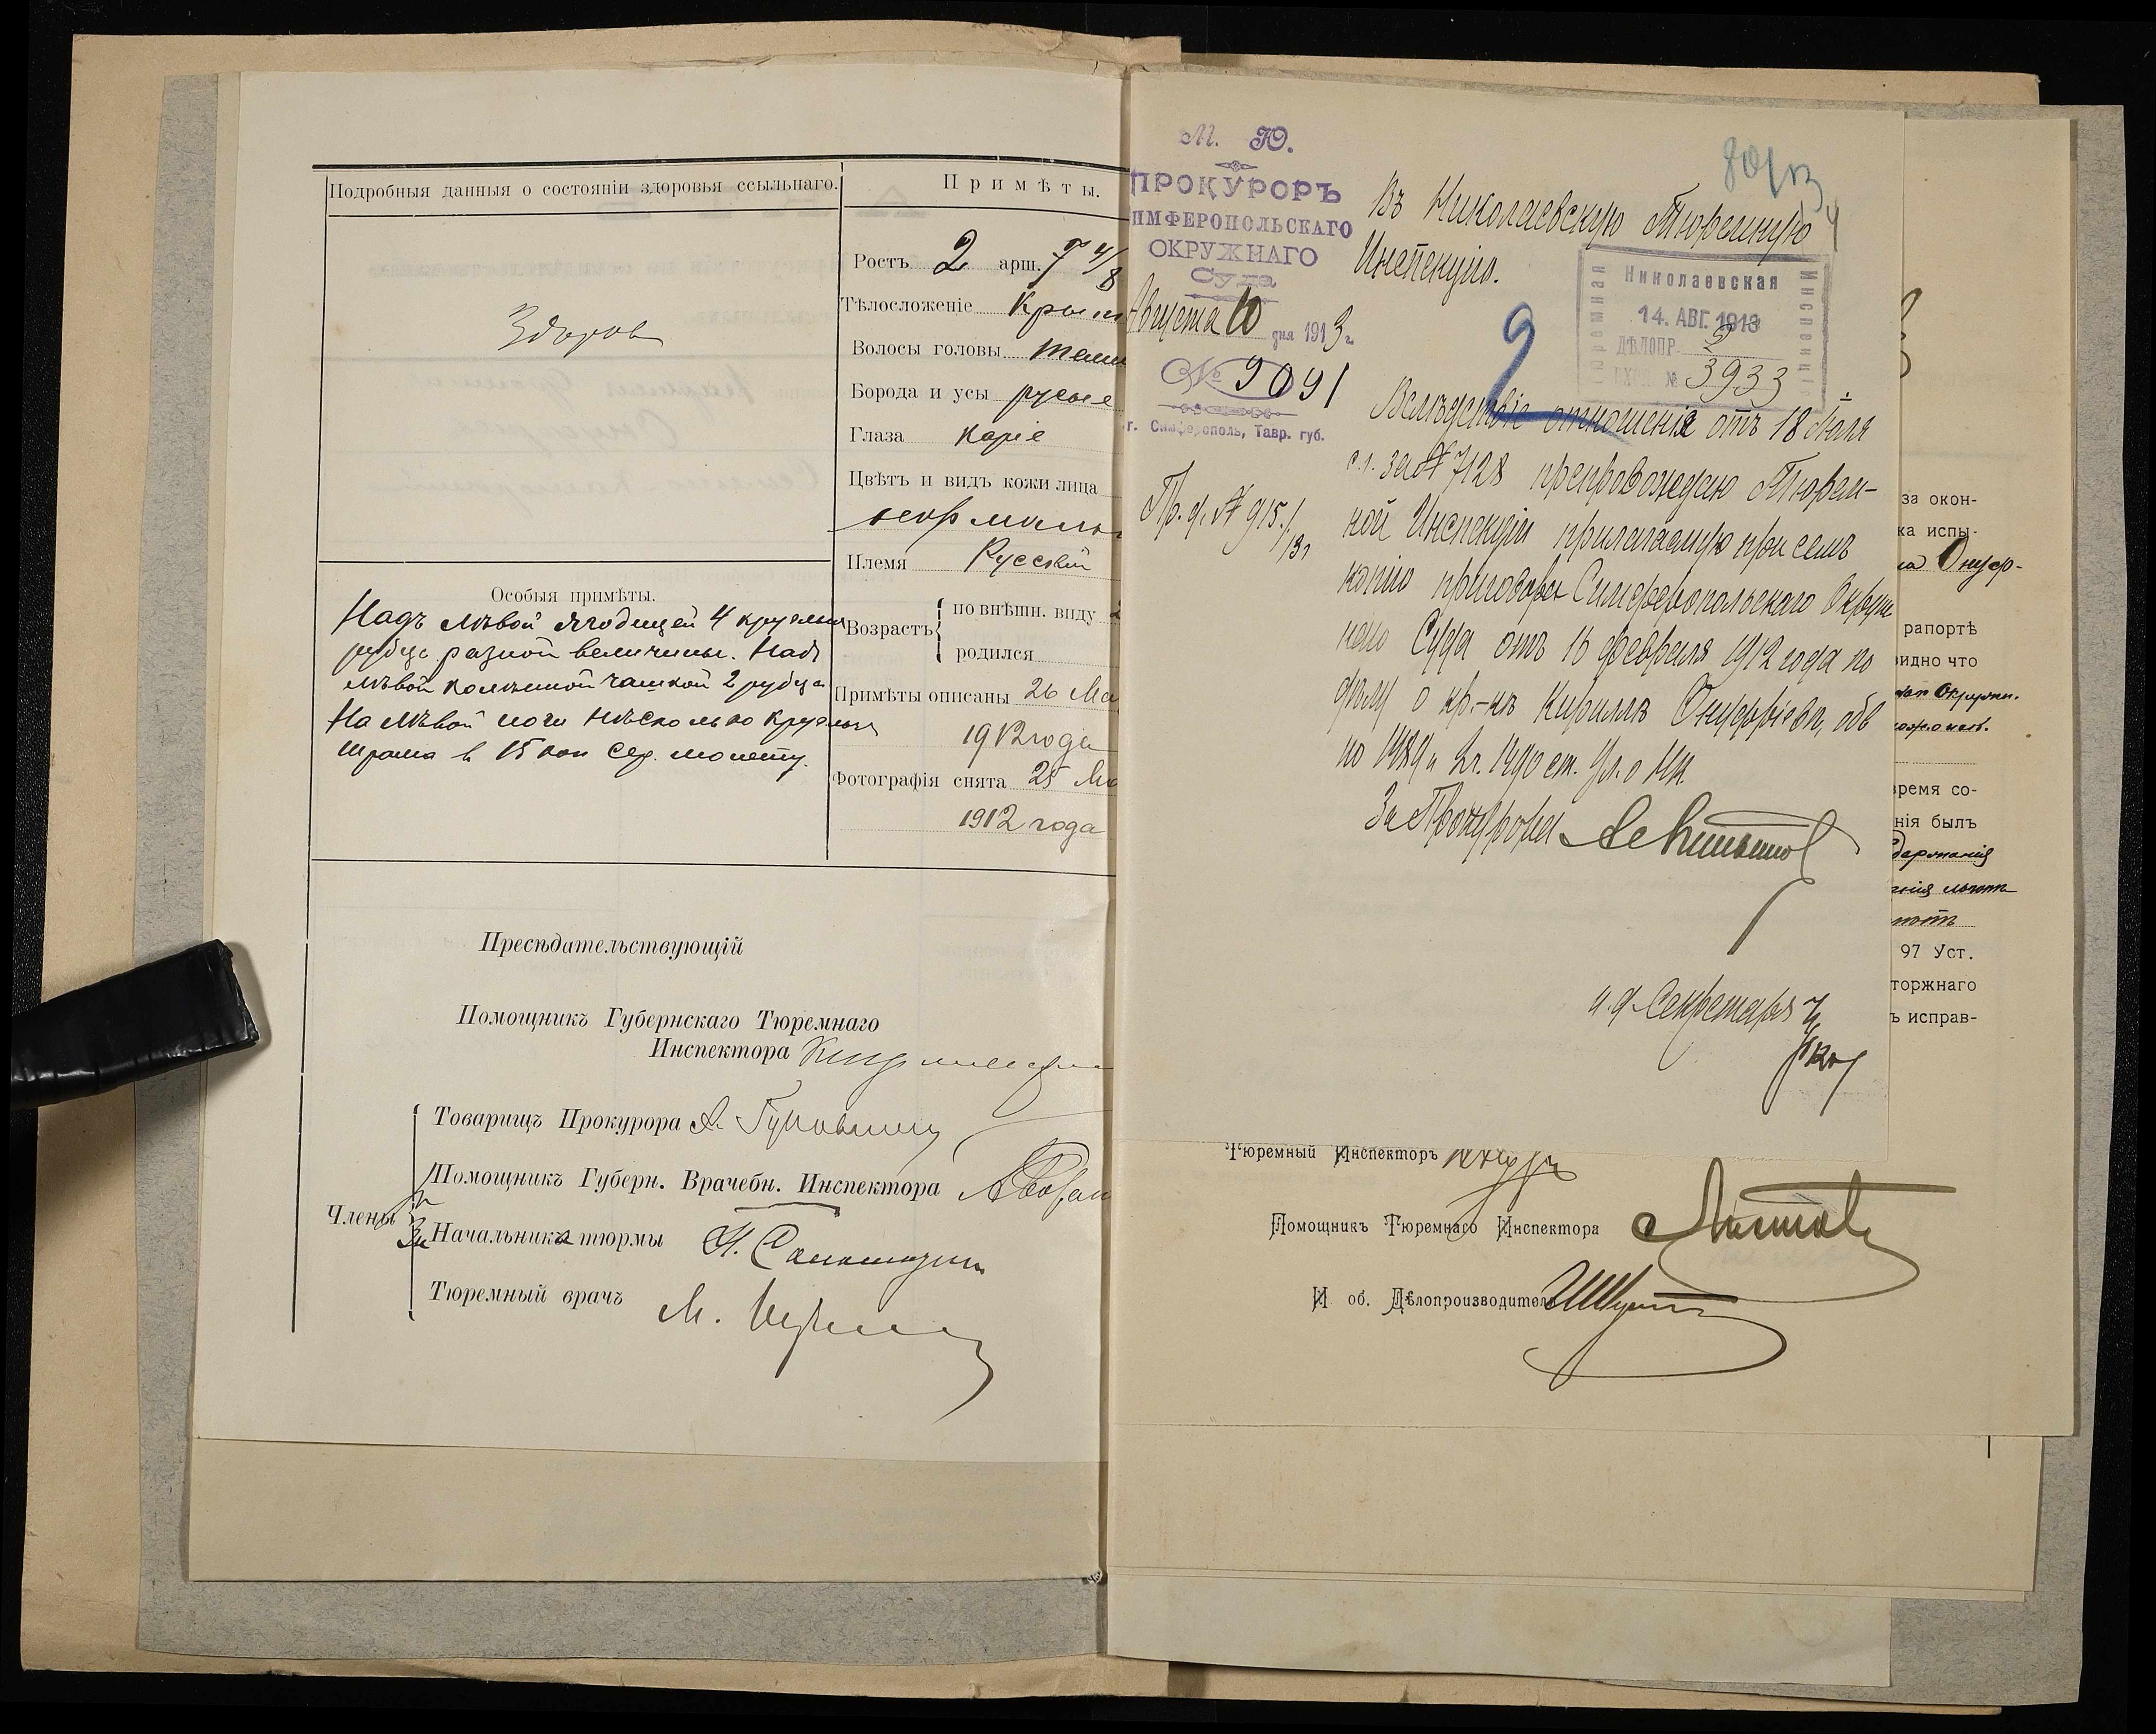 Подробныя данныя о состояніи здоровья ссыльнаго.
Здоров
Особыя примѣты.
Надъ лѣвой ягодицей 4 круглых
рубца разной величины. Надъ
лѣвой коленной чашкой 2 рубца
На лѣвой ноги нѣсколько круглых
шрама в 15 коп сер. монету.
Примѣты.
Ростъ 2 арш. 7 4/8
Тѣлосложеніе
Волосы головы
Борода и усы русые
Глаза каріе
Цвѣтъ и видъ кожи лица
Племя Русскій
Возрастъ
по внѣшн. виду
родился
Примѣты описаны 26
1912 года
Фотографія снята 25
1912 года
Пресѣдательствующій
Помощникъ Губернскаго Тюремнаго
Инспектора
Товарищъ Прокурора
Помощникъ Губерн. Врачебн. Инспектора
Члены
За Начальника тюрмы
Тюремный врачъ
М. Ю.
ПРОКУРОРЪ
ИМФЕРОПОЛЬСКАГО
ОКРУЖНАГО
Суда
Августа 10 дня 1913 г.
№ 9091
г. Симферополь, Тавр. губ.
Пр. д. № 915/13 г
80/13
4
Въ Николаевскую Тюремную
Инспекцію.
Николаевская
Тюремная
Инспекція
14. АВГ. 1913
ДѢЛОПР. 2
ВХОД. № 3933
9
Вслѣдствіе отношенія отъ 18 Іюля
с.г. за № 7128 препровождаю Тюрем-
ной Инспекціи прилагаемую при семъ
копію приговора Симферопольскаго Окруж
наго Суда отъ 16 февраля 1912 года по
дѣлу о кр.-нѣ Кириллѣ Онуфріевѣ, обв
по 1489 и 2 ч. 1490 ст. Ул. о Нк.
За Прокурора
и. д. Секретаря
за окон-
ка испы-
Онуф-
рапортѣ
видно что
Окружн.
время со-
нія былъ
держанія
97 Уст.
торжнаго
ъ исправ-
Тюремный Инспекторъ
Помощникъ Тюремнаго Инспектора
И об. Дѣлопроизводителя